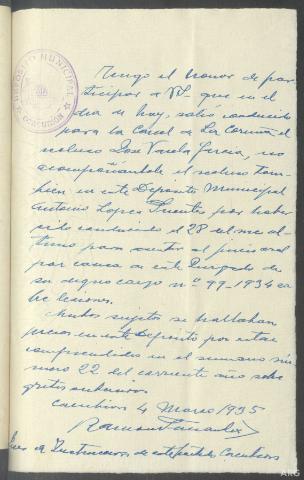 DEPOSITO MUNICIPAL
CORCUBIÓN
Tengo el honor de par-
ticipar a Vd. que en el
dia de hoy, salió conducido
para la Carcel de La Coruña el
recluso José Varela García, no
acompañandole el recluso tam-
bien en este Deposito Municipal
Antonio Lopez Fuentes por haber
sido conducido el 28 del mes úl-
timo para asistir al juicio oral
por causa de este Juzgado de
su digno cargo nº 99-1934 so-
bre lesiones.
sujetos se hallaban
presos en este Deposito por estar
comprendidos en el sumario nú-
mero 22 del corriente año sobre
gritos subversivos
Corcubion 4 Marzo 1935
Ramon
Juez de Instruccion de este partido Corcubion